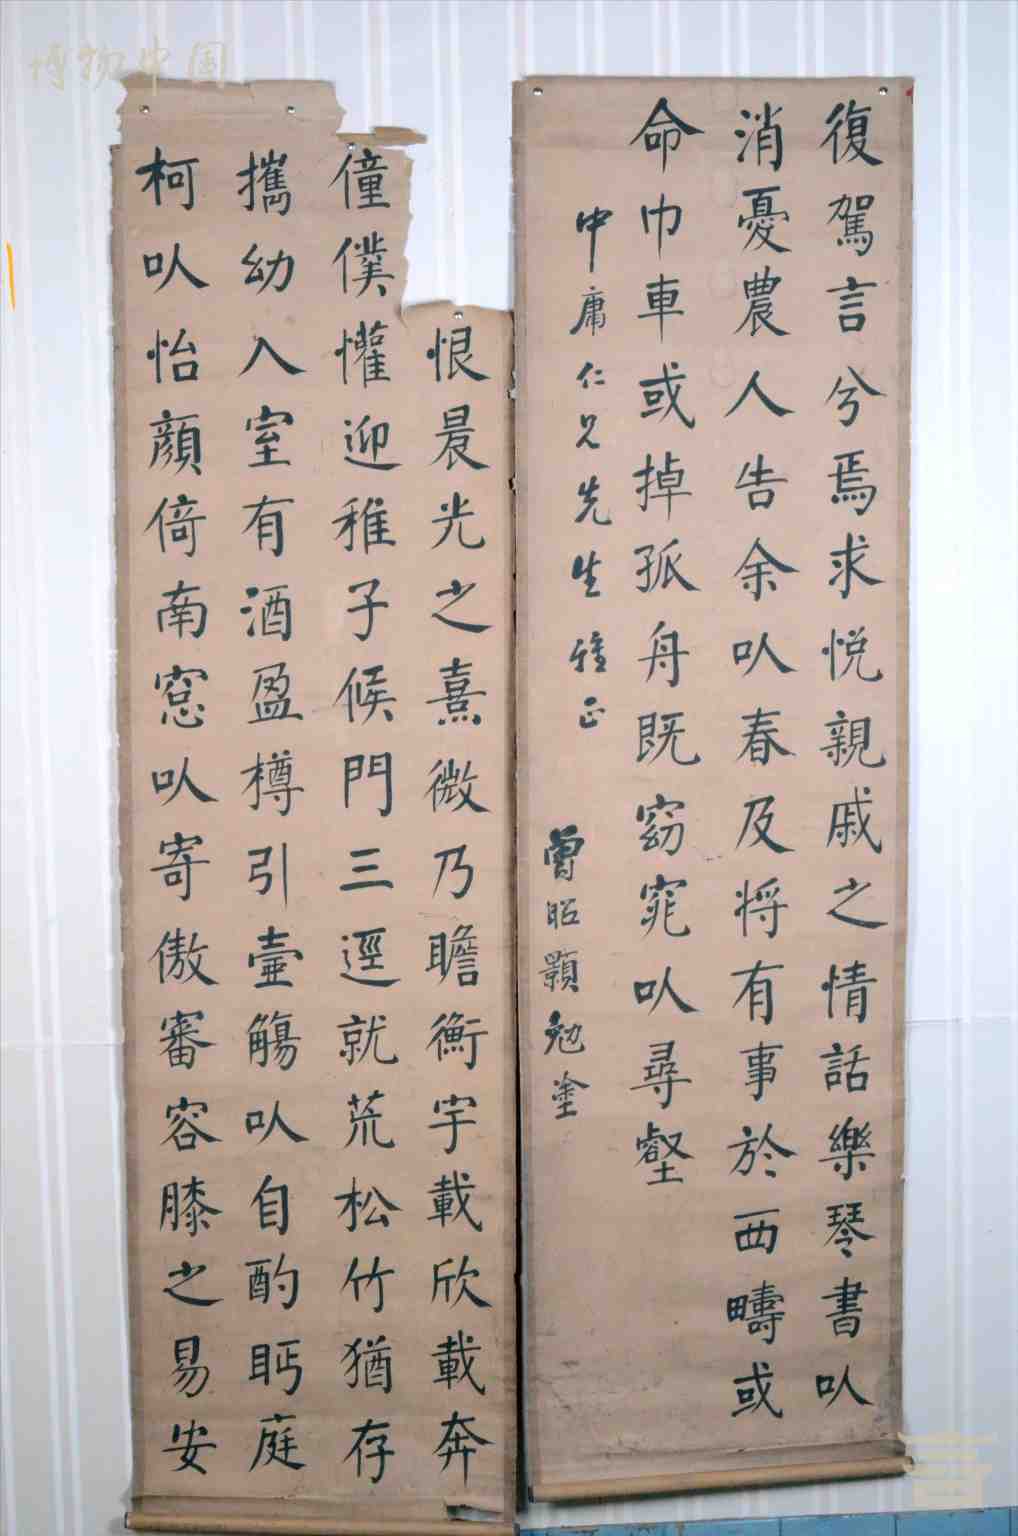 博物中国
恨晨光之熹微乃瞻衡宇載欣載奔
僮僕懽迎稚子候門三逕就荒松竹猶存
攜幼入室有酒盈樽引壷觴㕥自酌眄庭
柯㕥怡顔倚南窓㕥寄傲審容膝之易安
復駕言兮焉求悅親戚之情話樂琴書㕥
消憂農人告余㕥春及將有事於西疇或
命巾車或掉孤舟既窈窕㕥尋壑
中庸仁兄先生雅正
曾昭顯勉塗